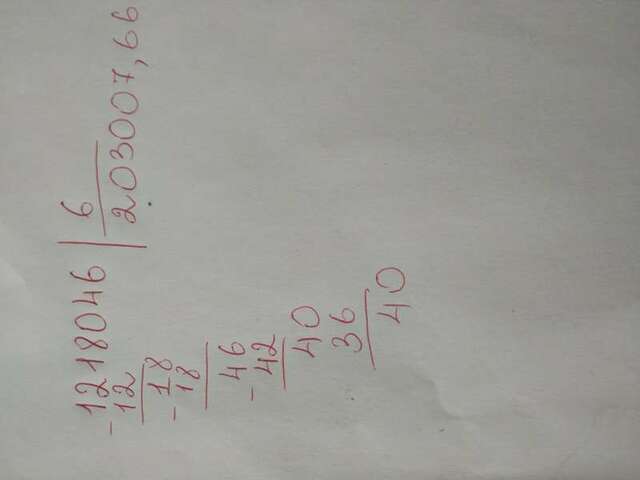 -1218046 | 6
12 203007,66
-18
18
-46
42
40
36
40